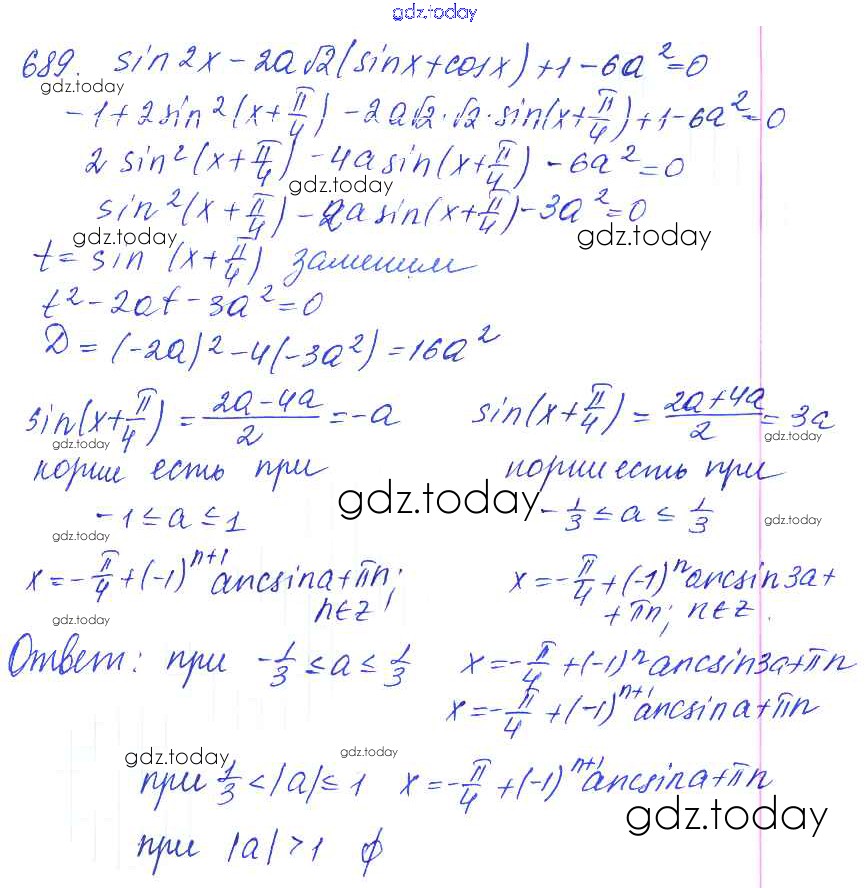 gdz.today
689. sin2x - 2a√2(sinx+cosx)+1-6a²=0
gdz.today
-1+2sin²(x+π/4) -2a√2·√2·sin(x+π/4)+1-6a²=0
2 sin²(x+π/4) -4a sin(x+π/4) -6a²=0
gdz.today
sin²(x+π/4)-2a sin(x+π/4)-3a²=0
gdz.today gdz.today
t=sin (x+π/4) заменим
t²-2at-3a²=0
D=(-2a)²-4(-3a²)=16a²
sin(x+π/4)=(2a-4a)/2=-a sin(x+π/4)=(2a+4a)/2=3a
gdz.today gdz.today
корни есть при корни есть при
gdz.today
-1≤a≤1 -1/3≤a≤1/3
gdz.today gdz.today
x=-π/4+(-1)ⁿ⁺¹arcsina+πn; x=-π/4+(-1)ⁿarcsin3a+
n∈z +πn; n∈z.
gdz.today
Ответ: при -1/3≤a≤1/3 x=-π/4+(-1)ⁿarcsin3a+πn
x=-π/4+(-1)ⁿ⁺¹arcsina+πn
gdz.today gdz.today
при 1/3<|a|≤1 x=-π/4+(-1)ⁿ⁺¹arcsina+πn
gdz.today
при |a|>1 ∅